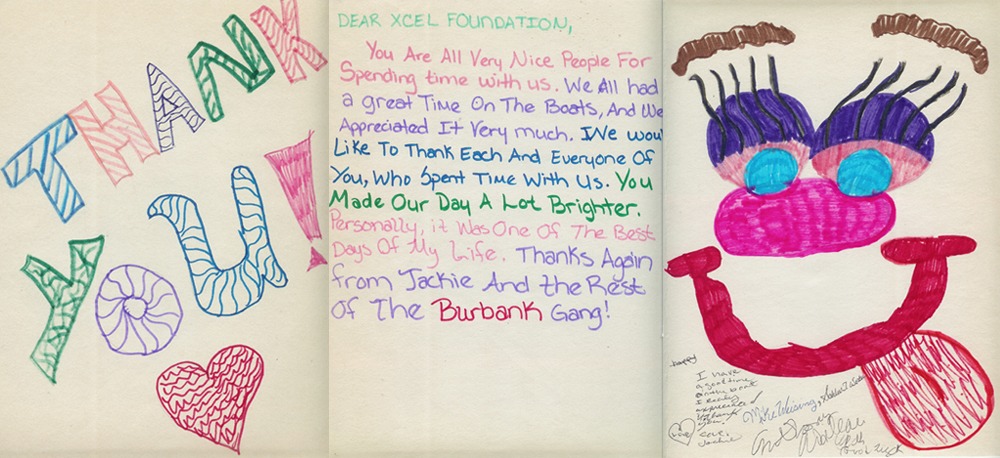 THANK
YOU!
DEAR XCEL FOUNDATION,
You Are All Very Nice People For
Spending time with us. We All had
a great Time On The Boats, And We
Appreciated It Very much. We woul
Like To Thank Each And Everyone Of
You, Who Spent Time With Us. You
Made Our Day A Lot Brighter.
Personally, it Was One Of The Best
Days Of My Life. Thanks Again
from Jackie And the Rest
Of The Burbank Gang!
happy
I have
a good time
on the boat
I Really
love
love,
Jackie
Mike